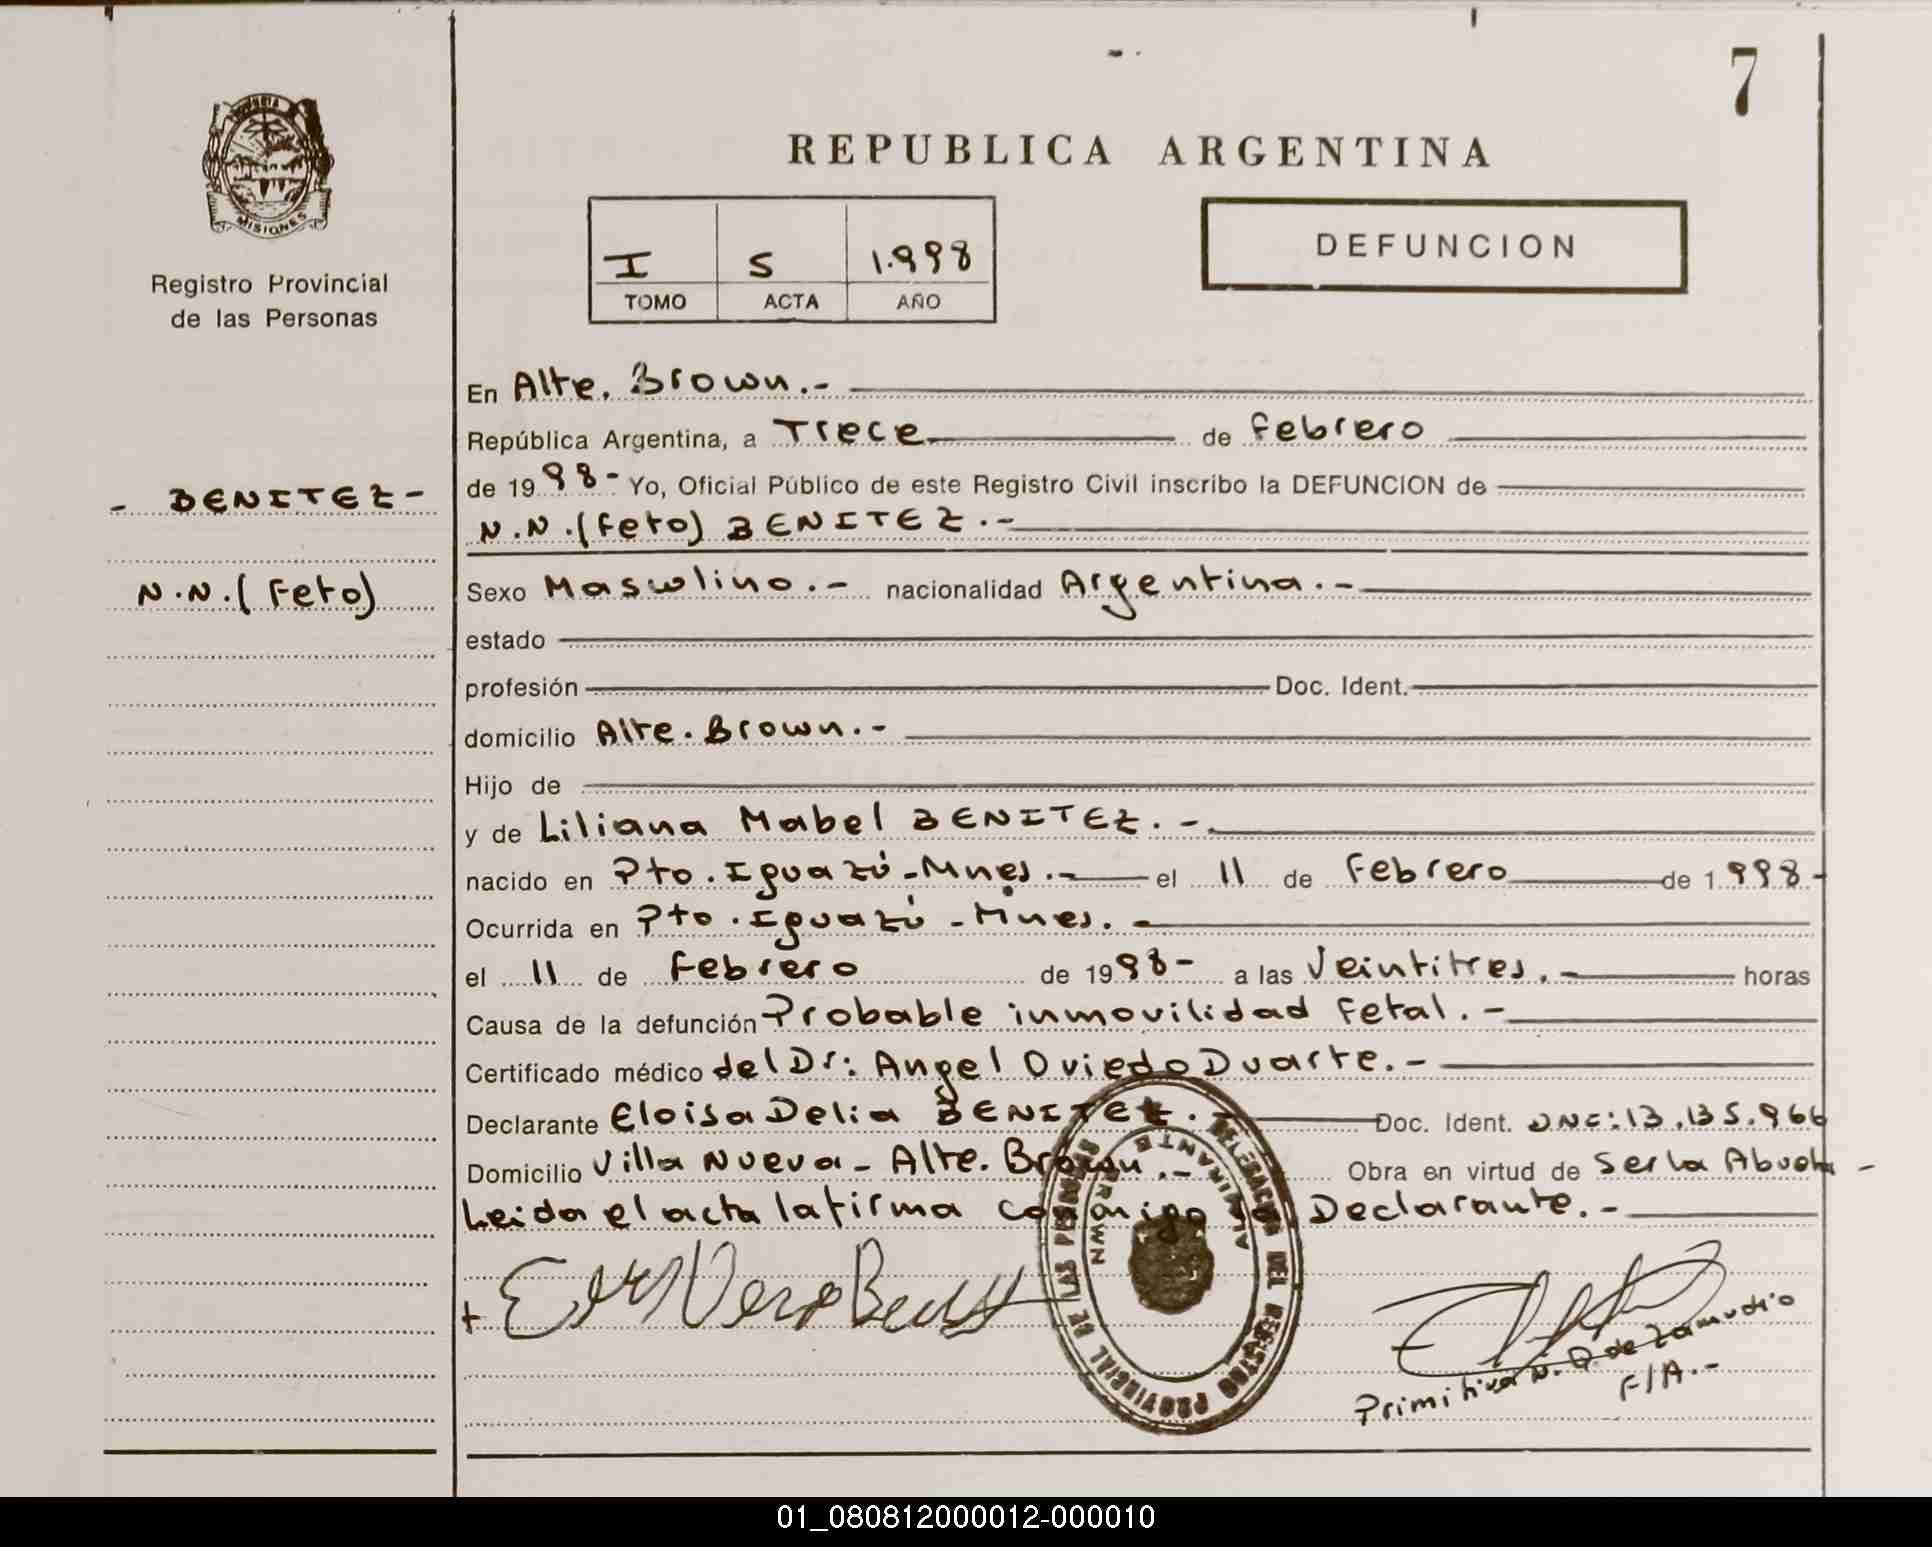 7
REPUBLICA ARGENTINA
PROVINCIA
MISIONES
Registro Provincial
de las Personas
I S 1.998
TOMO ACTA AÑO
DEFUNCION
- BENITEZ -
N.N. (Feto)
En Alte. Brown.-
República Argentina, a Trece de Febrero
de 1998- Yo, Oficial Público de este Registro Civil inscribo la DEFUNCION de
N.N. (Feto) BENITEZ.-
Sexo Masculino.- nacionalidad Argentina.-
estado
profesión Doc. Ident.
domicilio Alte. Brown.-
Hijo de
y de Liliana Mabel BENITEZ.-
nacido en Pto. Iguazú-Mnes.- el 11 de Febrero de 1.998-
Ocurrida en Pto. Iguazú-Mnes.-
el 11 de Febrero de 1998- a las Veintitres.- horas
Causa de la defunción Probable inmovilidad Fetal.-
Certificado médico del Dr: Angel Oviedo Duarte.-
Declarante Eloisa Delia BENITEZ.- Doc. Ident. DNI: 13.135.966
Domicilio Villa Nueva- Alte. Brown.- Obra en virtud de Ser la Abuela-
Leida el acta la firma conmigo Declarante.-
REGISTRO PROVINCIAL DE LAS PERSONAS
ALMIRANTE BROWN
Primitiva N. Q. de Zamudio
F/A.-
01_080812000012-000010